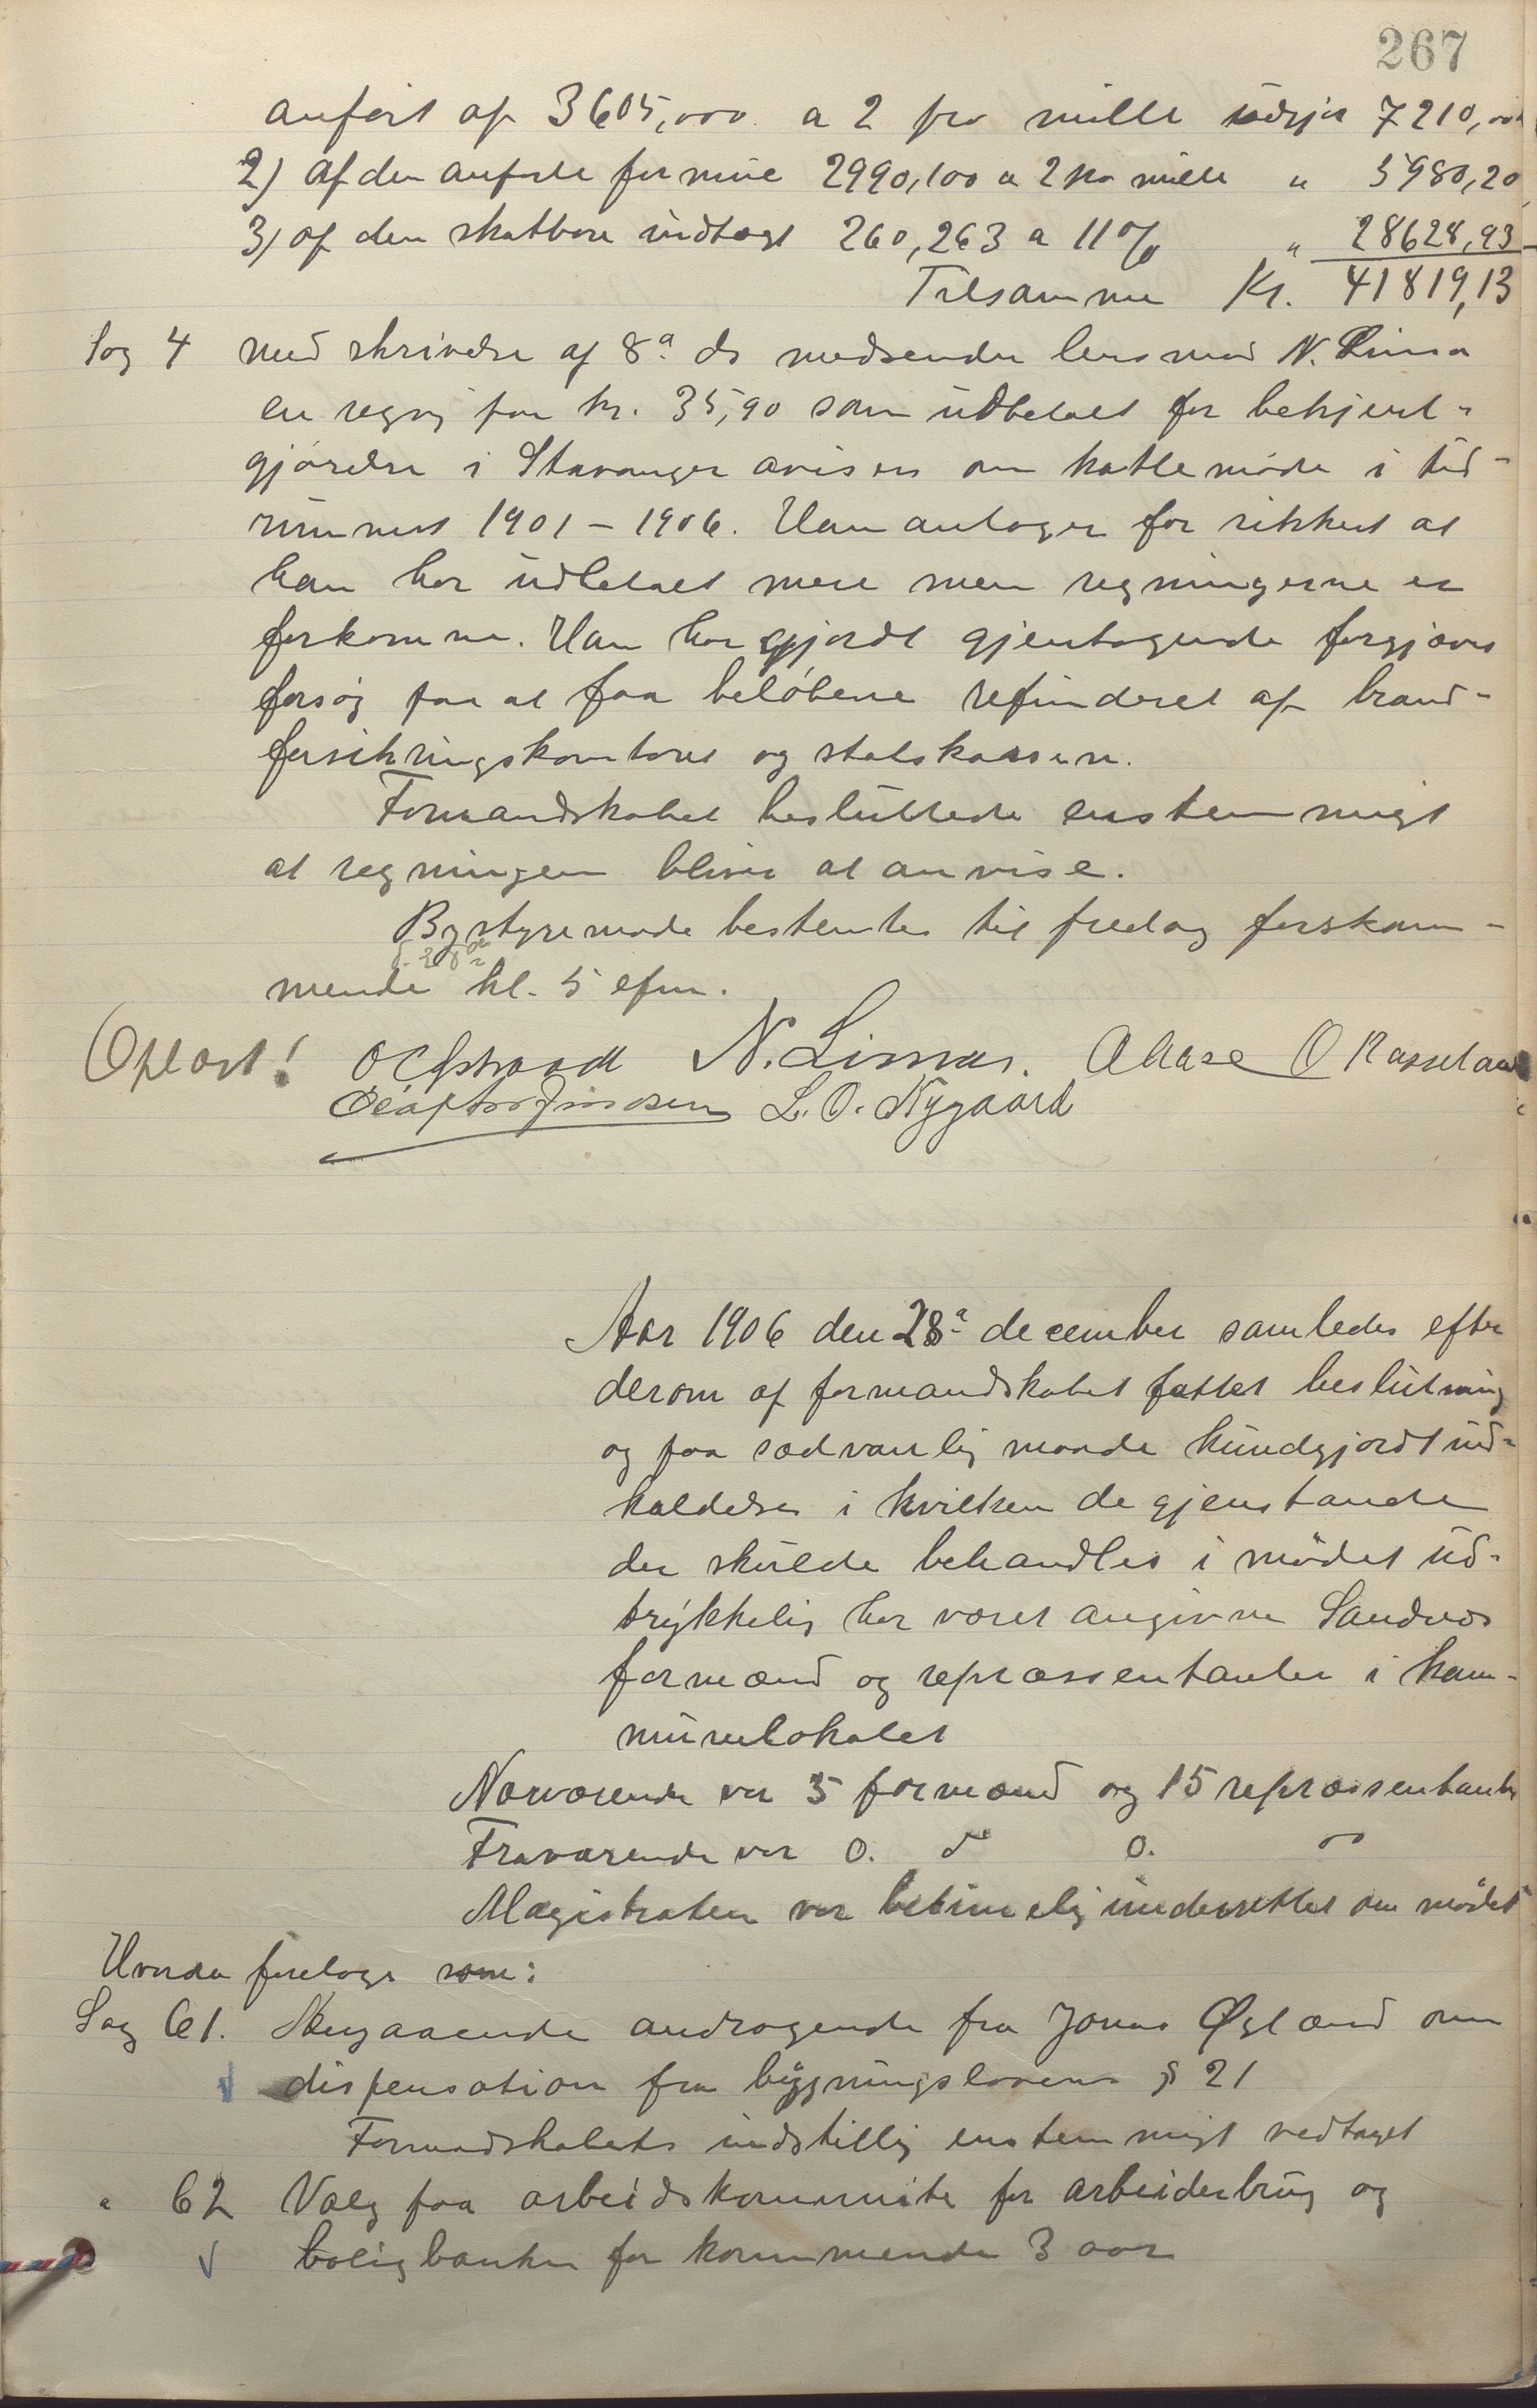 267
anført af 3605,000 a 2 pro mille udgjør 7210,00
2) af den anførte formue 2990,100 a 2 pro mille " 5980,20
3) af den skatbare indtægt 260,263 a 11% " 28628,93
Tilsammen Kr. 41819,13
Sag 4 med skrivelse af 8de ds medsender lensmand N. Lima
en regng paa kr. 35,90 som udbetalt for bekjent-
gjørelse i Stavanger aviser om møde i tid-
rummet 1901 - 1906. Han antager for sikkert at
han har udbetalt mere men regningerne er
forkomne. Han har gjordt gjentagende forgjæves
forsøg paa at faa beløbene refunderet af brand-
forsikringskontoret og statskassen.
Formandskabet besluttede enstemmigt
at regningen bliver at anvise.
Bystyremøde bestemtes til fredag førstkom-
d. 28de
mende kl. 5 efm.
Oplæst! N. Lima. A Aase O Rasseland
L. O. Nygaard
Aar 1906 den 28de december samledes efter
derom af formandskabet fattet beslutning
og paa sædvanlig maade kundgjordt ind-
kaldelse i hvilken de gjenstande
der skulde behandles i mødet ud-
trykkelig har været angivne Sandnæs
formænd og repræssentanter i kom-
munelokalet
Nærværende var 5 formænd og 15 repræssentanter
Fraværende var 0. do 0. do
Magistraten var betimelig underrettet om mødet
Hvorda foretoges som:
Sag 61. Angaaende andragende fra Jonas Øglænd om
dispensation fra bygningslovens § 21
Formandskabets indstillig enstemmigt vedtaget
" 62 Valg paa arbeidskommite for arbeiderbrug og
boligbanken for kommende 3 aar